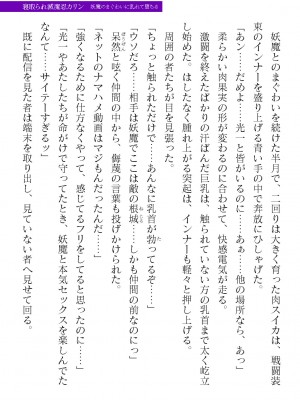 寝取られ滅魔忍カリン 妖魔のまぐわいに乱れて堕ちる
妖魔とのまぐわいを続けた半月で、二回りは大きく育った肉スイカは、戦闘装
束のインナーを盛り上げる青い手の中で奔放にひしゃげた。
「あっ…だめだよ…光一とがいるのに…あぁ……他の場所なら、あっ」
柔らかい肉果実の形が変わるのに合わせて、快感電気が走る。
激闘を終えたばかりの汗ばんだ巨乳は、触られていない方の乳首まで太く屹立
し始めた。はしたなく腫れ上がる突起は、インナーも軽々と押し上げる。
周囲の者たちが目を見張った。
「ちょっと触られただけで……あんなに乳首が勃ってるぞ……」
「ウソだろ……相手は妖魔でここは敵の根城……しかも仲間の前なのにっ」
呆然と呟く仲間の中から、侮蔑の言葉も投げかけられた。
「ネットのナマハメ動画はマジもんだったんだ……」
「強くなるために仕方なくやって、感じてるフリをしてると思ったのに……」
「光一やあたしたちが命がけで守ってたとき、妖魔と本気セックスを楽しんでた
なんて……サイテーすぎるッ」
既に配信を見た者は端末を取り出し、見ていない者へ見せて回る。